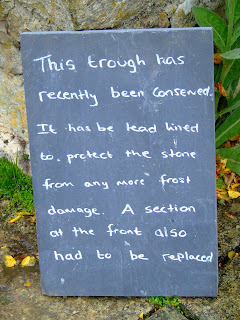 This trough has
recently been conserved.
It has be lead lined
to protect the stone
from any more frost
damage. A section
at the front also
had to be replaced